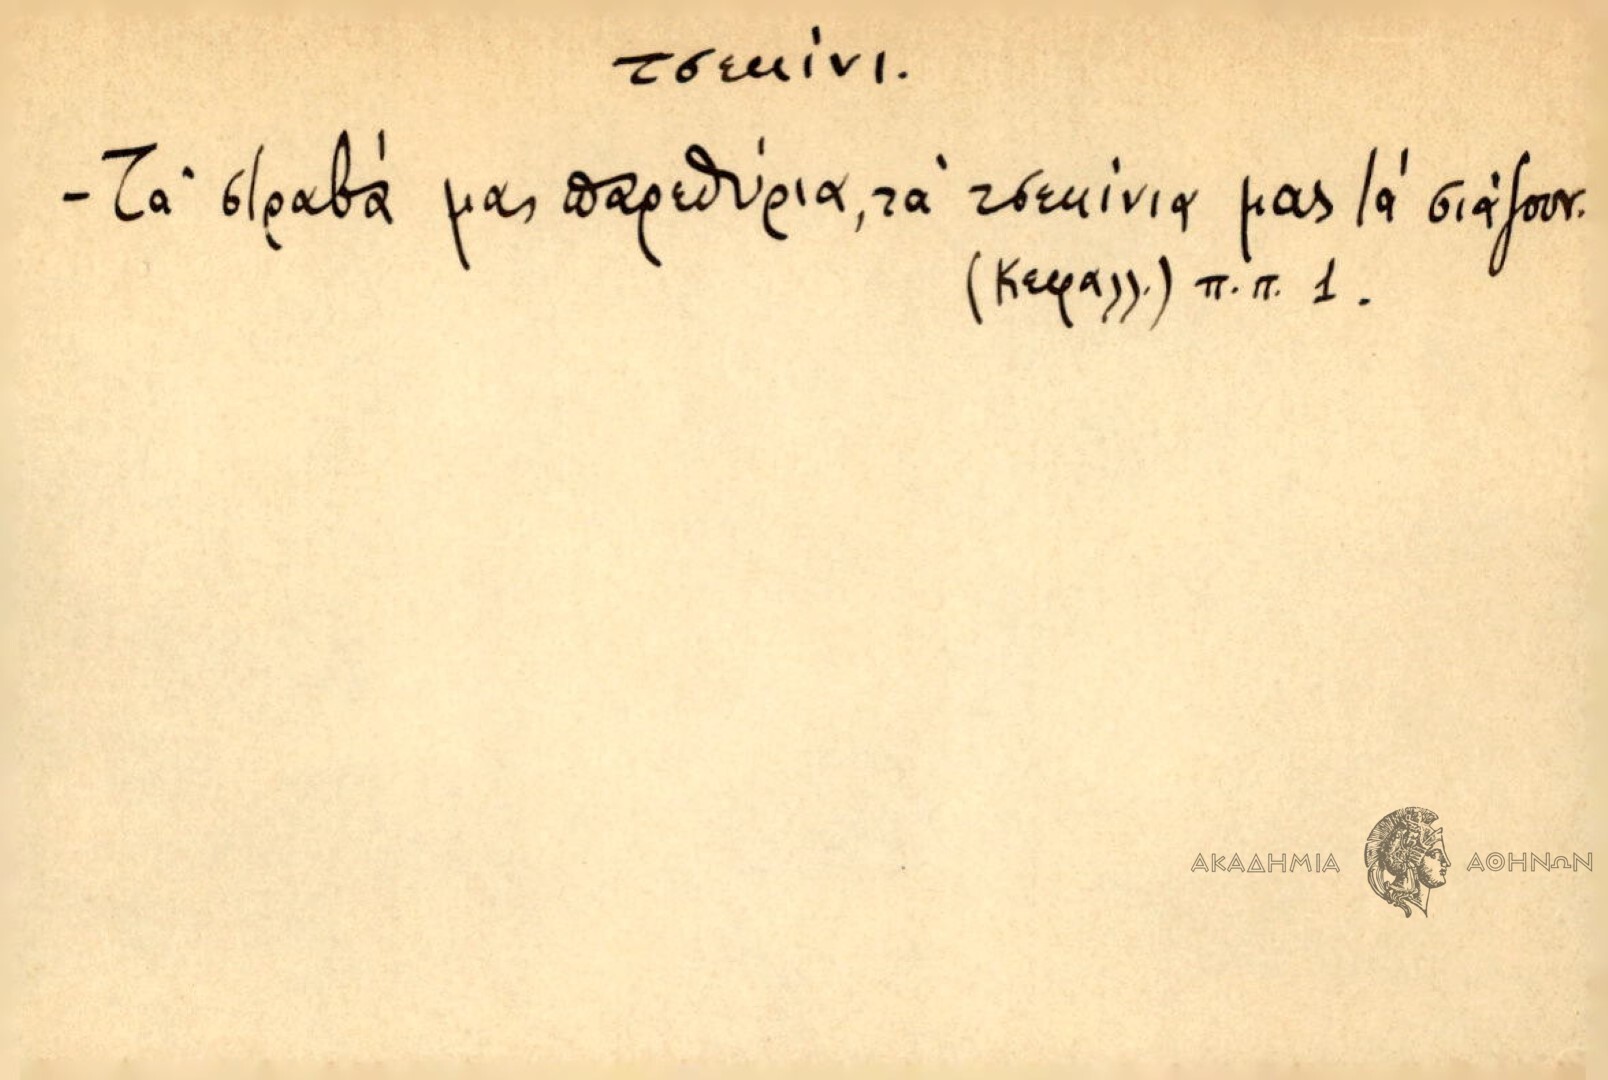 τσεκίνι.
- Τὰ στραβά μας παρεθύρια, τὰ τσεκίνια μας τά σιάζουν.
(Κεφαλλ.) π.π. 1.
ΑΚΑΔΗΜΙΑ ΑΘΗΝΩΝ